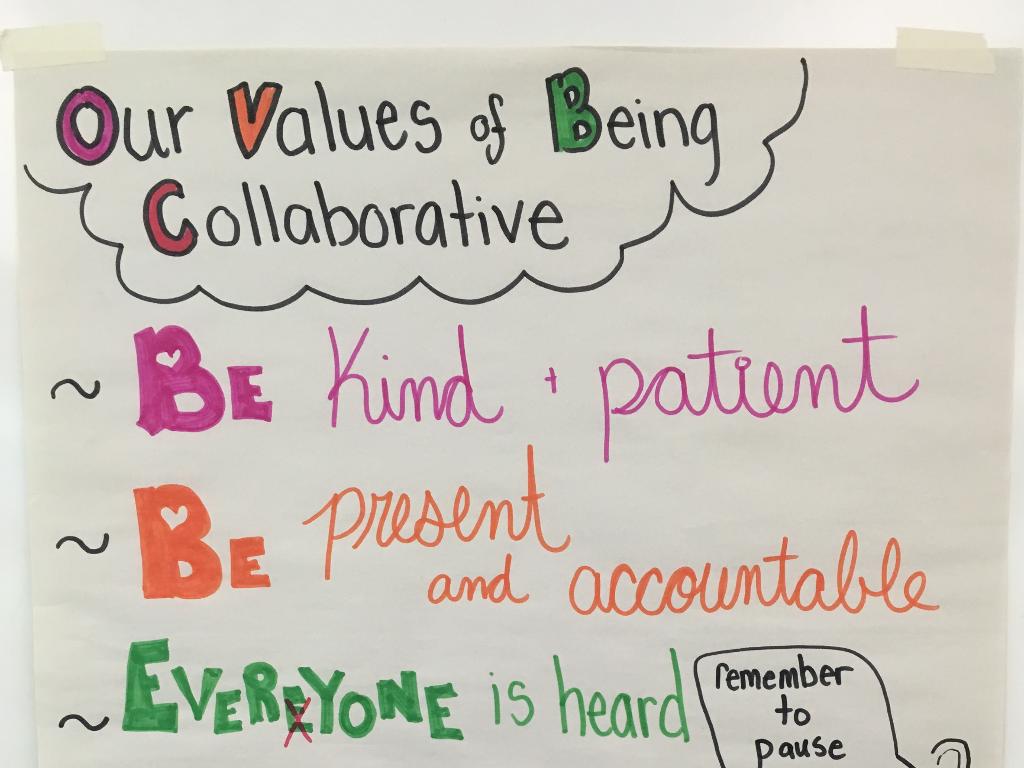 Our Values of Being
Collaborative
~ Be Kind + patient
~ Be present
and accountable
~ EVEREYONE is heard
remember
to
pause